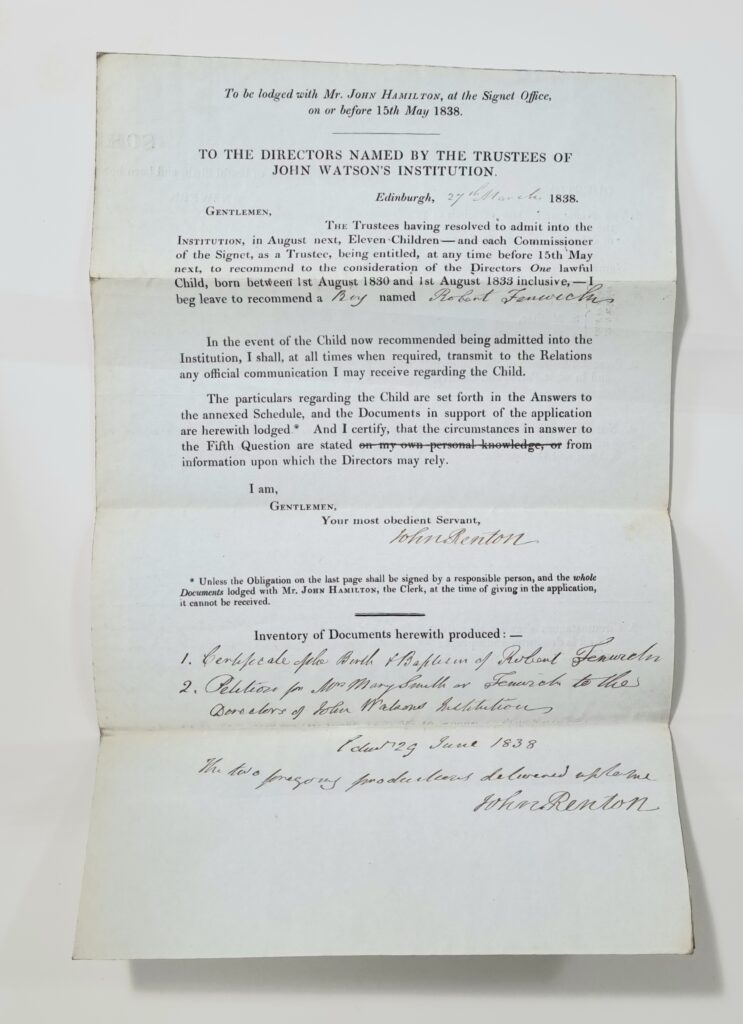 To be lodged with Mr. JOHN HAMILTON, at the Signet Office,
on or before 15th May 1838.
TO THE DIRECTORS NAMED BY THE TRUSTEES OF
JOHN WATSON'S INSTITUTION.
Edinburgh, 27th March 1838.
GENTLEMEN,
THE Trustees having resolved to admit into the
INSTITUTION, in August next, Eleven Children—and each Commissioner
of the Signet, as a Trustee, being entitled, at any time before 15th May
next, to recommend to the consideration of the Directors One lawful
Child, born between 1st August 1830 and 1st August 1833 inclusive,—I
beg leave to recommend a Boy named Robert Fenwick
In the event of the Child now recommended being admitted into the
Institution, I shall, at all times when required, transmit to the Relations
any official communication I may receive regarding the Child.
The particulars regarding the Child are set forth in the Answers to
the annexed Schedule, and the Documents in support of the application
are herewith lodged.* And I certify, that the circumstances in answer to
the Fifth Question are stated on my own personal knowledge, or from
information upon which the Directors may rely.
I am,
GENTLEMEN,
Your most obedient Servant,
John Renton
* Unless the Obligation on the last page shall be signed by a responsible person, and the whole
Documents lodged with Mr. JOHN HAMILTON, the Clerk, at the time of giving in the application,
it cannot be received.
Inventory of Documents herewith produced:—
1. Certificate of the Birth & Baptism of Robert Fenwick
2. Petition for Mrs Mary Smith or Fenwick to the
Directors of John Watsons Institution
29 June 1838
The two foregoing productions delivered up to me
John Renton